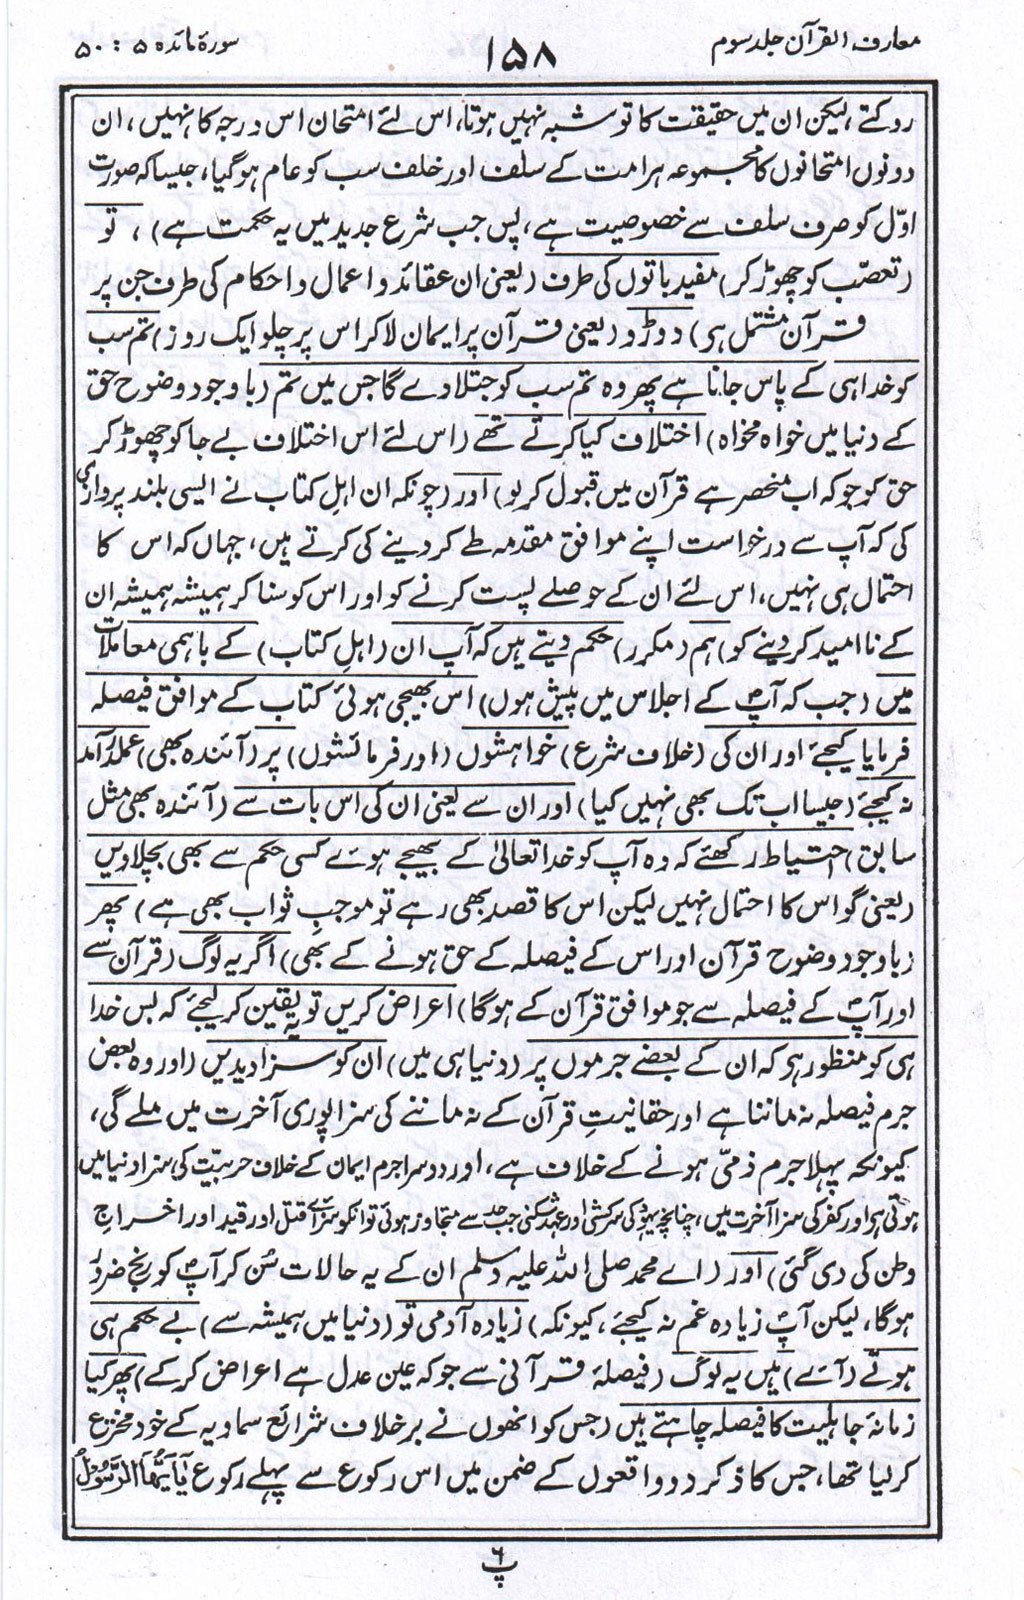 معارف القرآن جلد سوم
۱۵۸
سورۃ مائدہ ۵ : ۵۰
روکتے، لیکن ان میں حقیقت کا تو شبہ نہیں ہوتا، اس لئے امتحان اس درجہ کا نہیں، ان
دونوں امتحانوں کا مجموعہ ہر امت کے سلف اور خلف سب کو عام ہوگیا، جیسا کہ صورت
اوّل کو صرف سلف سے خصوصیت ہے، پس جب شرع جدید میں یہ حکمت ہے) ، تو
(تعصّب کو چھوڑ کر) مفید باتوں کی طرف (یعنی ان عقائد و اعمال و احکام کی طرف جن پر
قرآن مشتمل ہی) دوڑو (یعنی قرآن پر ایمان لاکر اس پر چلو ایک روز) تم سب
کو خدا ہی کے پاس جانا ہے پھر وہ تم سب کو جتلا دے گا جس میں تم (باوجود وضوح حق
کے دنیا میں خواہ مخواہ) اختلاف کیا کرتے تھے (اس لئے اس اختلاف بے جا کو چھوڑ کر
حق کو جو کہ اب منحصر ہے قرآن میں قبول کرلو) اور (چونکہ ان اہل کتاب نے ایسی بلند پروازی
کی کہ آپ سے درخواست اپنے موافق مقدمہ طے کر دینے کی کرتے ہیں، جہاں کہ اس کا
احتمال ہی نہیں، اس لئے ان کے حوصلے پست کرنے کو اور اس کو سنا کر ہمیشہ ہمیشہ ان
کے نا امید کر دینے کو) ہم (مکرر) حکم دیتے ہیں کہ آپ ان (اہلِ کتاب) کے باہمی معاملات
میں (جب کہ آپؐ کے اجلاس میں پیش ہوں) اس بھیجی ہوئی کتاب کے موافق فیصلہ
فرمایا کیجئے اور ان کی (خلاف شرع) خواہشوں (اور فرمائشوں) پر (آئندہ بھی) عملدرآمد
نہ کیجئے (جیسا اب تک بھی نہیں کیا) اور ان سے یعنی ان کی اس بات سے (آئندہ بھی مثل
سابق) احتیاط رکھئے کہ وہ آپ کو خدا تعالیٰ کے بھیجے ہوئے کسی حکم سے بھی بچلا دیں
(یعنی گو اس کا احتمال نہیں لیکن اس کا قصد بھی رہے تو موجبِ ثواب بھی ہے) پھر
(باوجود وضوح قرآن اور اس کے فیصلہ کے حق ہونے کے بھی) اگر یہ لوگ (قرآن سے
اور آپؐ کے فیصلہ سے جو موافق قرآن کے ہوگا) اعراض کریں تو یہ یقین کر لیجئے کہ بس خدا
ہی کو منظور ہی کہ ان کے بعضے جرموں پر (دنیا ہی میں) ان کو سزا دیدیں (اور وہ بعض
جرم فیصلہ نہ ماننا ہے اور حقانیتِ قرآن کے نہ ماننے کی سزا پوری آخرت میں ملے گی،
کیونکہ پہلا جرم ذمّی ہونے کے خلاف ہے، اور دوسرا جرم ایمان کے خلاف حربیّت کی سزا دنیا میں
ہوتی ہی اور کفر کی سزا آخرت میں، چنانچہ یہود کی سرکشی اور عہد شکنی جب حد سے متجاوز ہوئی تو انکو سزائے قتل اور قید اور اخراجِ
وطن کی دی گئی) اور (اے محمد صلی اللہ علیہ وسلم ان کے یہ حالات سُن کر آپؐ کو رنج ضرور
ہوگا، لیکن آپؐ زیادہ غم نہ کیجئے، کیونکہ) زیادہ آدمی تو (دنیا میں ہمیشہ سے) بے حکم ہی
ہوتے (آئے) ہیں یہ لوگ (فیصلۂ قرآنی سے جو کہ عین عدل ہے اعراض کرکے) پھر کیا
زمانۂ جاہلیت کا فیصلہ چاہتے ہیں (جس کو انھوں نے برخلاف شرائع سماویہ کے خود مخترع
کرلیا تھا، جس کا ذکر دو واقعوں کے ضمن میں اس رکوع سے پہلے رکوع یٰٓاَیُّھَا الرَّسُوْلُ
پ۶